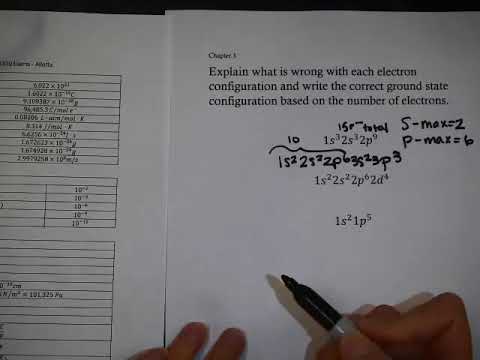 Chapter 3
Explain what is wrong with each electron
configuration and write the correct ground state
configuration based on the number of electrons.
15e⁻ total
S-max=2
10
1s³2s³2p⁹
p-max=6
1s²2s²2p⁶3s²3p³
1s²2s²2p⁶2d⁴
1s²1p⁵
6.022 × 10²³
1.6022 × 10⁻¹⁹C
9.109387 × 10⁻²⁸g
96,485.3 C/mol e⁻
0.08206 L·atm/mol·K
8.314 J/mol·K
1.672623 × 10⁻²⁴g
1.674928 × 10⁻²⁴g
2.9979258 × 10⁸m/s
10⁻²
10⁻³
10⁻⁶
10⁻⁹
10⁻¹²